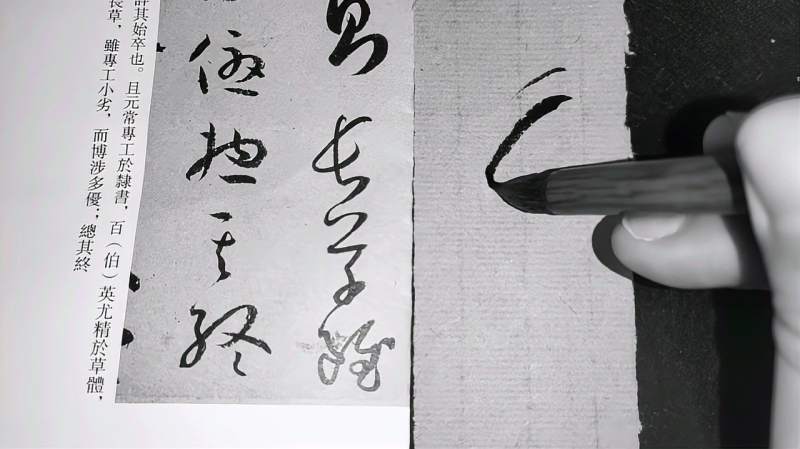 長草雖
優總其終
詳其始卒也。且元常專工於隸書，百（伯）英尤精於草體，
長草，雖專工小劣，而博涉多優；總其終